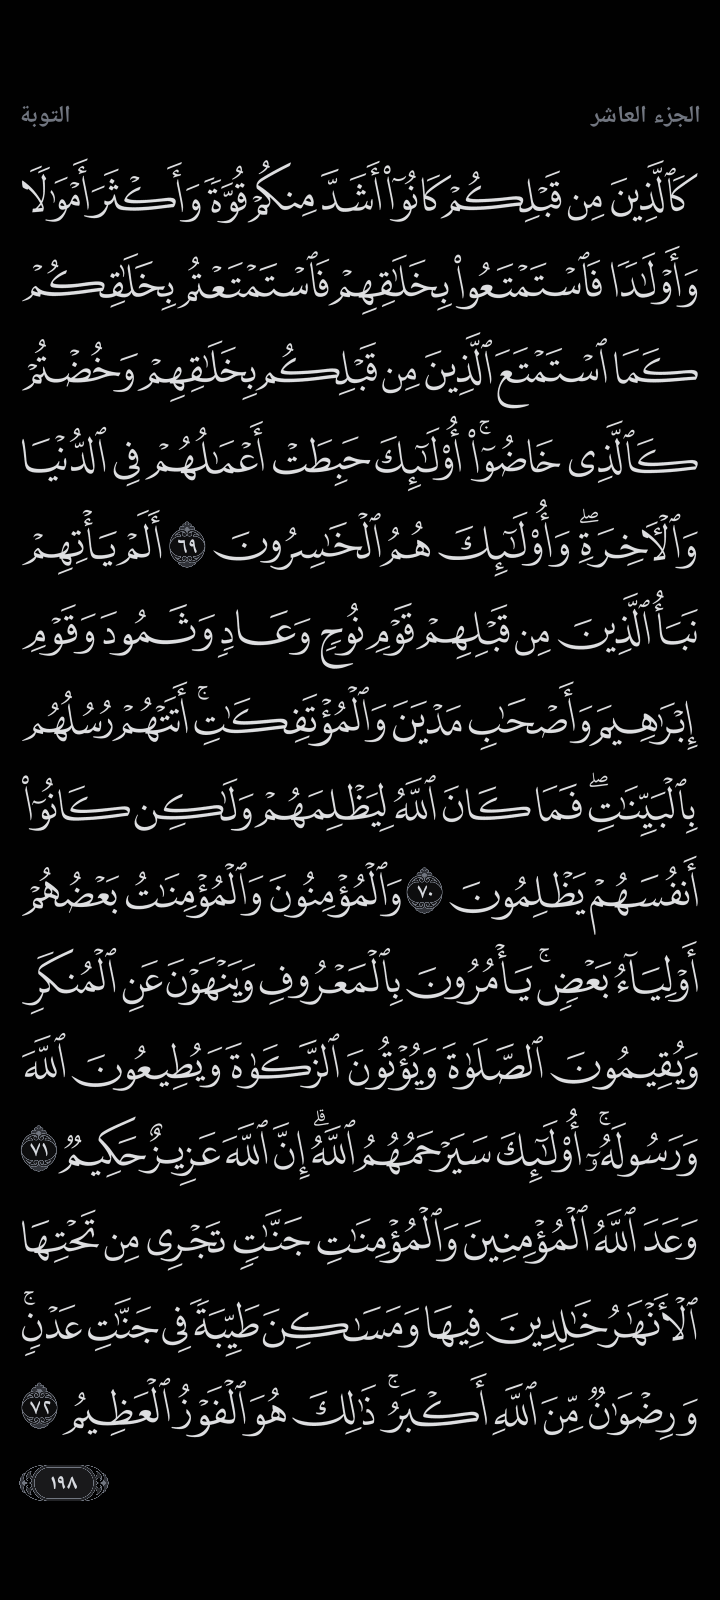 الجزء العاشر
التوبة
كَٱلَّذِينَ مِن قَبۡلِكُمۡ كَانُوٓاْ أَشَدَّ مِنكُمۡ قُوَّةٗ وَأَكۡثَرَ أَمۡوَٰلٗا
وَأَوۡلَٰدٗا فَٱسۡتَمۡتَعُواْ بِخَلَٰقِهِمۡ فَٱسۡتَمۡتَعۡتُم بِخَلَٰقِكُمۡ
كَمَا ٱسۡتَمۡتَعَ ٱلَّذِينَ مِن قَبۡلِكُم بِخَلَٰقِهِمۡ وَخُضۡتُمۡ
كَٱلَّذِي خَاضُوٓاْۚ أُوْلَٰٓئِكَ حَبِطَتۡ أَعۡمَٰلُهُمۡ فِي ٱلدُّنۡيَا
وَٱلۡأٓخِرَةِۖ وَأُوْلَٰٓئِكَ هُمُ ٱلۡخَٰسِرُونَ ٦٩ أَلَمۡ يَأۡتِهِمۡ
نَبَأُ ٱلَّذِينَ مِن قَبۡلِهِمۡ قَوۡمِ نُوحٖ وَعَادٖ وَثَمُودَ وَقَوۡمِ
إِبۡرَٰهِيمَ وَأَصۡحَٰبِ مَدۡيَنَ وَٱلۡمُؤۡتَفِكَٰتِۚ أَتَتۡهُمۡ رُسُلُهُم
بِٱلۡبَيِّنَٰتِۖ فَمَا كَانَ ٱللَّهُ لِيَظۡلِمَهُمۡ وَلَٰكِن كَانُوٓاْ
أَنفُسَهُمۡ يَظۡلِمُونَ ٧٠ وَٱلۡمُؤۡمِنُونَ وَٱلۡمُؤۡمِنَٰتُ بَعۡضُهُمۡ
أَوۡلِيَآءُ بَعۡضٖۚ يَأۡمُرُونَ بِٱلۡمَعۡرُوفِ وَيَنۡهَوۡنَ عَنِ ٱلۡمُنكَرِ
وَيُقِيمُونَ ٱلصَّلَوٰةَ وَيُؤۡتُونَ ٱلزَّكَوٰةَ وَيُطِيعُونَ ٱللَّهَ
وَرَسُولَهُۥٓۚ أُوْلَٰٓئِكَ سَيَرۡحَمُهُمُ ٱللَّهُۗ إِنَّ ٱللَّهَ عَزِيزٌ حَكِيمٞ ٧١
وَعَدَ ٱللَّهُ ٱلۡمُؤۡمِنِينَ وَٱلۡمُؤۡمِنَٰتِ جَنَّٰتٖ تَجۡرِي مِن تَحۡتِهَا
ٱلۡأَنۡهَٰرُ خَٰلِدِينَ فِيهَا وَمَسَٰكِنَ طَيِّبَةٗ فِي جَنَّٰتِ عَدۡنٖۚ
وَرِضۡوَٰنٞ مِّنَ ٱللَّهِ أَكۡبَرُۚ ذَٰلِكَ هُوَ ٱلۡفَوۡزُ ٱلۡعَظِيمُ ٧٢
١٩٨